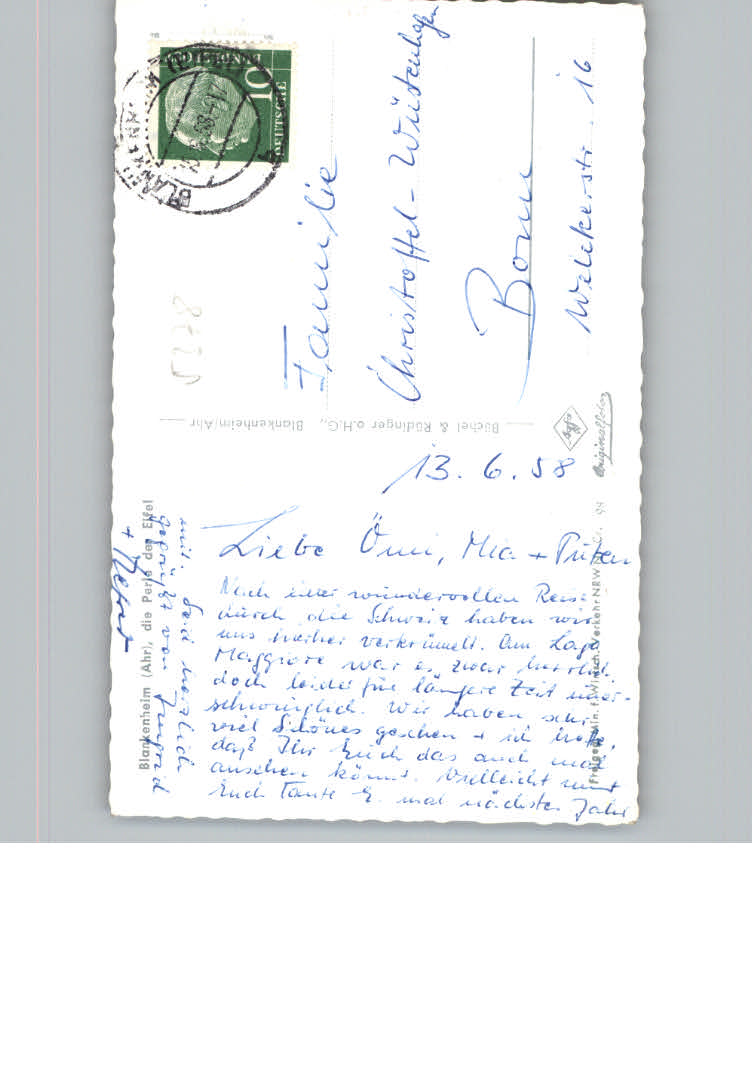 13.6.58
Liebe Ömi, Mia +
Nach einer wundervollen Reise
durch die Schweiz haben wir
uns hierher verkrümelt. Am Lago
Maggiore war es zwar herrlich,
doch leider für längere Zeit uner-
schwinglich. Wir haben sehr
viel Schönes gesehen + ich hoffe,
daß Ihr Euch das auch mal
ansehen könnt. Vielleicht nimmt
Euch Tante E. mal nächstes Jahr
mit. Seid herzlich
gegrüßt von
Familie
Christoffel-Wüstenhagen
Bonn
Welckerstr. 16
Blankenheim (Ahr), die Perle der Eifel
Büchel & Rödinger o.H.G., Blankenheim/Ahr
Agfa
Originalfoto
10
DEUTSCHE
BUNDESPOST
BLANKENHEIM
5278